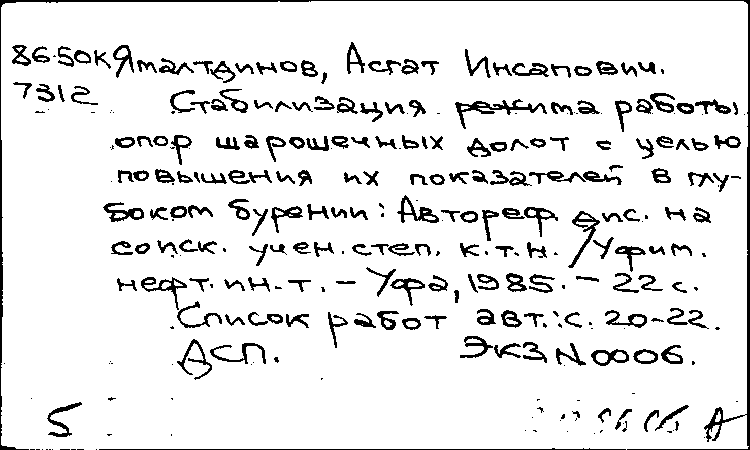 86-50К Ямалтдинов, Асгат Инсапович.
7312 Стабилизация режима работы
опор шарошечных долот с целью
повышения их показателей в глу-
боком бурении: Автореф. дис. на
соиск. учен. степ. к.т.н. / Уфим.
нефт. ин-т. - Уфа, 1985. - 22 с.
Список работ авт.: с. 20-22.
ДСП. ЭКЗ. N 0006.
5